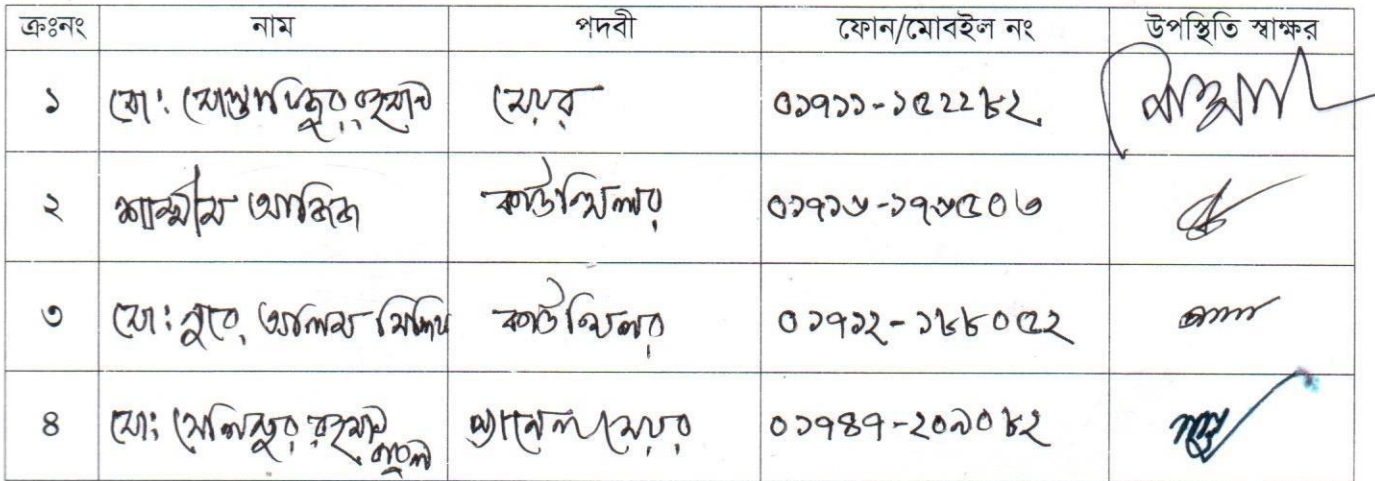 ক্রঃনং নাম পদবী ফোন/মোবইল নং উপস্থিতি স্বাক্ষর
১ মো: মোস্তাফিজুর রহমান মেয়র ০১৭১১-১৫২২৮২
২ শামীম আজিজ কাউন্সিলর ০১৭১৬-১৭৬৫০৬
৩ মো: নুরে আলম কাউন্সিলর ০১৭১২-১৮৮০৫২
৪ মো: রহমান প্যানেল মেয়র ০১৭৪৭-২০৯০৮২
বাবুল